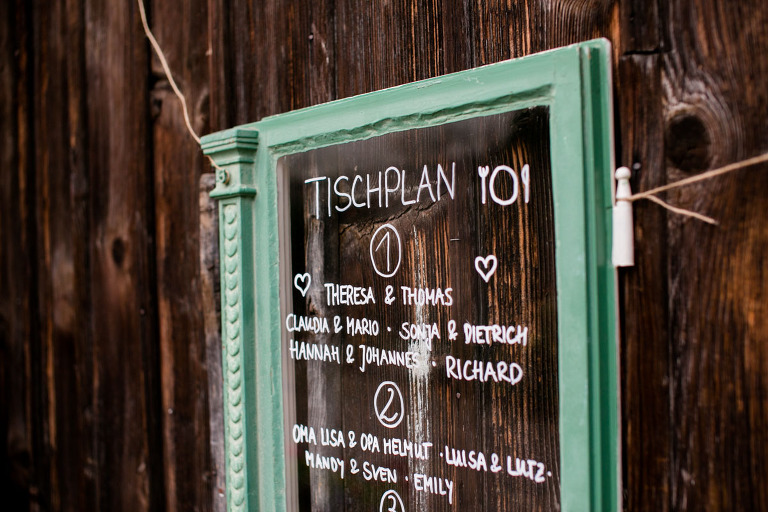 TISCHPLAN
1
THERESA & THOMAS
CLAUDIA & MARIO · SONJA & DIETRICH
HANNAH & JOHANNES · RICHARD
2
OMA LISA & OPA HELMUT · LUISA & LUTZ ·
MANDY & SVEN · EMILY
3